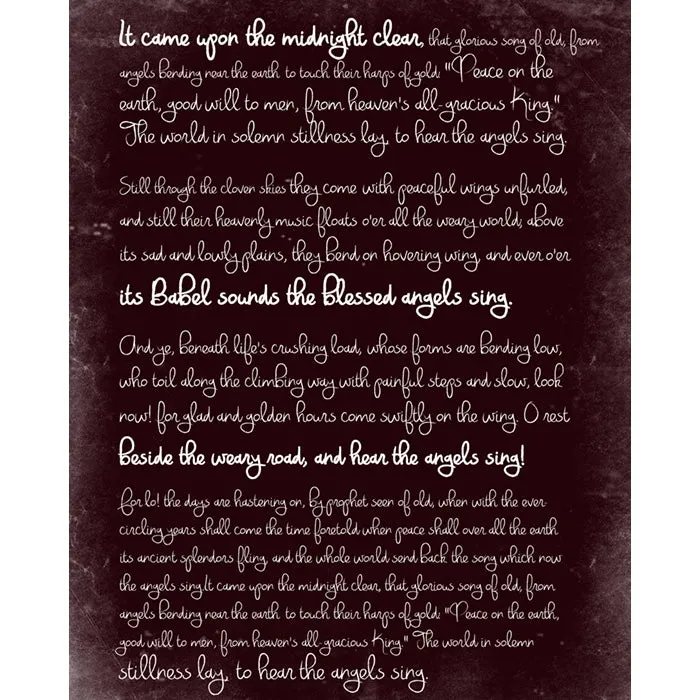 It came upon the midnight clear, that glorious song of old, from
angels bending near the earth to touch their harps of gold: "Peace on the
earth, good will to men, from heaven's all-gracious King."
The world in solemn stillness lay, to hear the angels sing.
Still through the cloven skies they come with peaceful wings unfurled,
and still their heavenly music floats o'er all the weary world; above
its sad and lowly plains, they bend on hovering wing, and ever o'er
its Babel sounds the blessed angels sing.
And ye, beneath life's crushing load, whose forms are bending low,
who toil along the climbing way with painful steps and slow, look
now! for glad and golden hours come swiftly on the wing. O rest
beside the weary road, and hear the angels sing!
For lo! the days are hastening on, by prophet seen of old, when with the ever-
circling years shall come the time foretold when peace shall over all the earth
its ancient splendors fling, and the whole world send back the song which now
the angels sing.It came upon the midnight clear, that glorious song of old, from
angels bending near the earth to touch their harps of gold: "Peace on the earth,
good will to men, from heaven's all-gracious King." The world in solemn
stillness lay, to hear the angels sing.